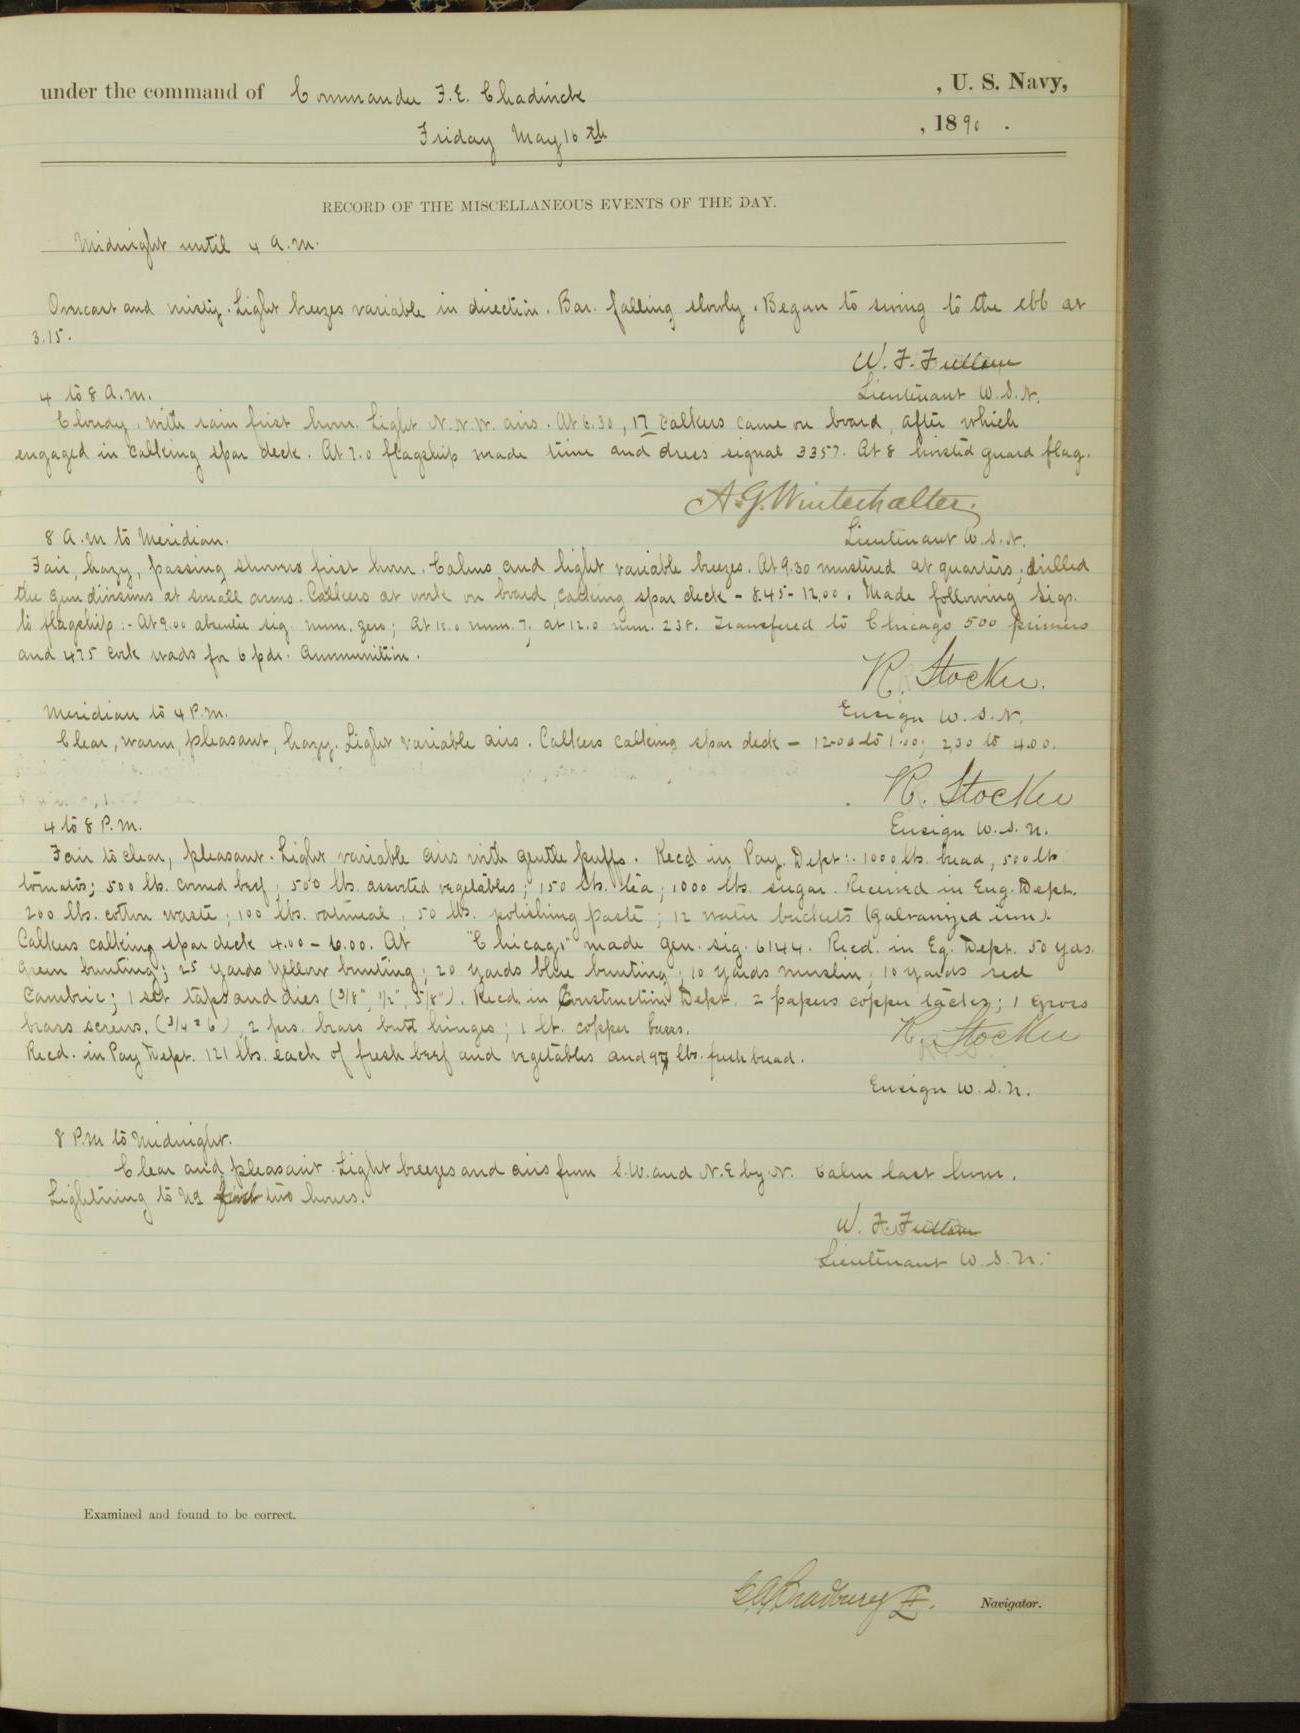 under the command of Commander F. E. Chadwick , U. S. Navy,
Friday May 16th , 1890.
RECORD OF THE MISCELLANEOUS EVENTS OF THE DAY.
Midnight until 4 A.M.
Overcast and misty. Light breezes variable in direction. Bar. falling slowly. Began to swing to the ebb at
3.15.
W. F. Fullam
Lieutenant U.S.N.
4 to 8 A.M.
Cloudy, with rain first hour. Light N.N.W. airs. At 6.30, 17 calkers came on board, after which
engaged in calking spar deck. At 7.0 flagship made time and dress signal 3357. At 8 hoisted guard flag.
A. G. Winterhalter.
Lieutenant U.S.N.
8 A.M to Meridian.
Fair, hazy, passing showers first hour. Calms and light variable breezes. At 9.30 mustered at quarters; drilled
the gun divisions at small arms. Calkers at work on board, calking spar deck - 8.45 - 12.00. Made following sigs.
to flagship:- At 9.00 absentee sig. num. zero; At 10.0 num. 7; at 12.0 num. 238. Transferred to Chicago 500 primers
and 475 cork wads for 6 pdr. ammunition.
R. Stocker.
Ensign U.S.N.
Meridian to 4 P.M.
Clear, warm, pleasant, hazy. Light variable airs. Calkers calking spar deck - 12.00 to 1.00; 2.30 to 4.00.
R. Stocker
Ensign U.S.N.
4 to 8 P.M.
Fair to clear, pleasant. Light variable airs with gentle puffs. Recd in Pay. Dept:- 1000 lbs. bread, 500 lbs.
tomatos; 500 lbs. corned beef; 500 lbs. assorted vegetables; 150 lbs. tea; 1000 lbs. sugar. Received in Eng. Dept.
200 lbs. cotton waste; 100 lbs. oatmeal, 50 lbs. polishing paste; 12 water buckets (galvanized iron).
Calkers calking spar deck 4.00 - 6.00. At "Chicago" made gen. sig. 6144. Recd. in Eq. Dept. 50 yds.
green bunting; 25 yards yellow bunting; 20 yards blue bunting; 10 yards muslin; 10 yards red
Cambric; 1 set taps and dies (3/8", 1/2", 5/8"). Recd in Construction Dept. 2 papers copper tacks; 1 gross
brass screws, (3/4" 6), 2 prs. brass butt hinges; 1 lb. copper
R. Stocker
Recd. in Pay Dept. 121 lbs. each of fresh beef and vegetables and 97 lbs. fresh bread.
Ensign U.S.N.
8 P.M to Midnight.
Clear and pleasant. Light breezes and airs from S.W. and N.E by N. Calm last hour.
Lightning to first two hours.
W. F. Fullam
Lieutenant U.S.N.
Examined and found to be correct.
C. A. Bradbury Lt. Navigator.